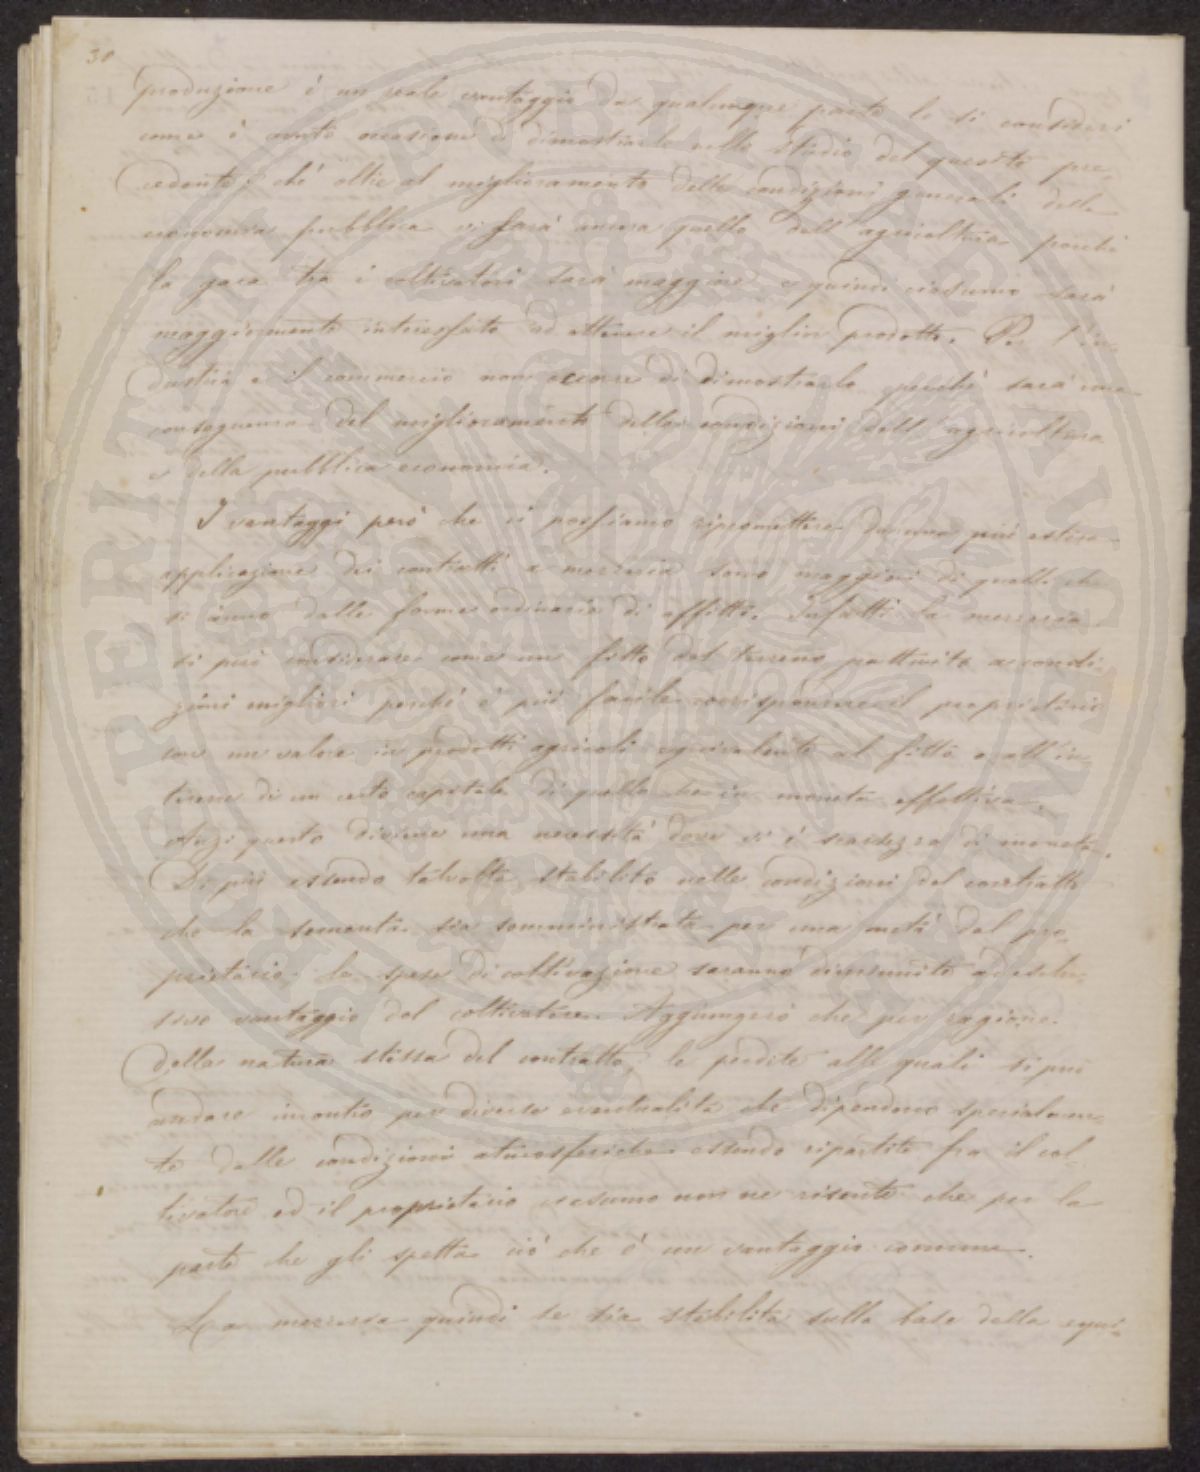 30
produzione è un reale vantaggio da qualunque parte lo si consideri
come è avuto occasione di dimostrarlo nello studio del quesito pre-
cedente; chè oltre al miglioramento delle condizioni generali della
economia pubblica vi sarà ancora quello dell'agricoltura perchè
la gara tra i coltivatori sarà maggiore e quindi ciascuno sarà
maggiormente interessato ad ottenere il miglior prodotto. Per l'in-
dustria e il commercio non occorre di dimostrarlo perchè sarà una
conseguenza del miglioramento delle condizioni dell'agricoltura
e della pubblica economia.
I vantaggi però che ci possiamo ripromettere da una più estesa
applicazione dei contratti a mezzeria sono maggiori di quelli che
si ànno dalle forme ordinarie di affitto. Infatti la mezzeria
si può considerare come un fitto del terreno pattuito a condi-
zioni migliori perchè è più facile corrispondere il proprietario
con un valore in prodotti agricoli equivalente al fitto o all'in-
teresse di un certo capitale di quello che in moneta effettiva.
Anzi questo diviene una necessità dove vi è scarsezza di moneta.
Di più essendo talvolta stabilito nelle condizioni del contratto
che la sementa sia somministrata per una metà dal pro-
prietario, le spese di coltivazione saranno diminuite ad esclu-
sivo vantaggio del coltivatore. Aggiungerò che per ragione
della natura stessa del contratto, le perdite alle quali si può
andare incontro per diverse eventualità che dipendono specialmen-
te dalle condizioni atmosferiche essendo ripartite fra il col-
tivatore ed il proprietario ciascuno non ne risente che per la
parte che gli spetta ciò che è un vantaggio comune.
La mezzeria quindi se sia stabilita sulla base della equi-